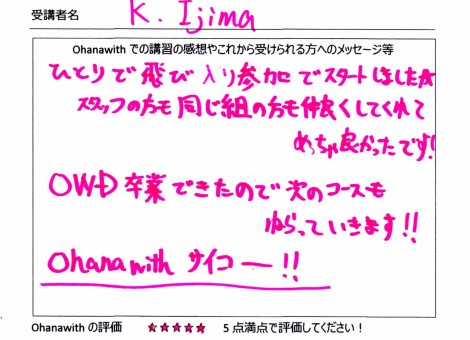 受講者名 K. Ijima
Ohanawith での講習の感想やこれから受けられる方へのメッセージ等
ひとりで飛び入り参加でスタートしました☆
スタッフの方も同じ組の方も仲良くしてくれて
めっちゃ良かったです!
OWD 卒業できたので次のコースも
ねらっていきます!!
Ohanawith サイコー!!
Ohanawith の評価 ★★★★★ 5 点満点で評価してください!